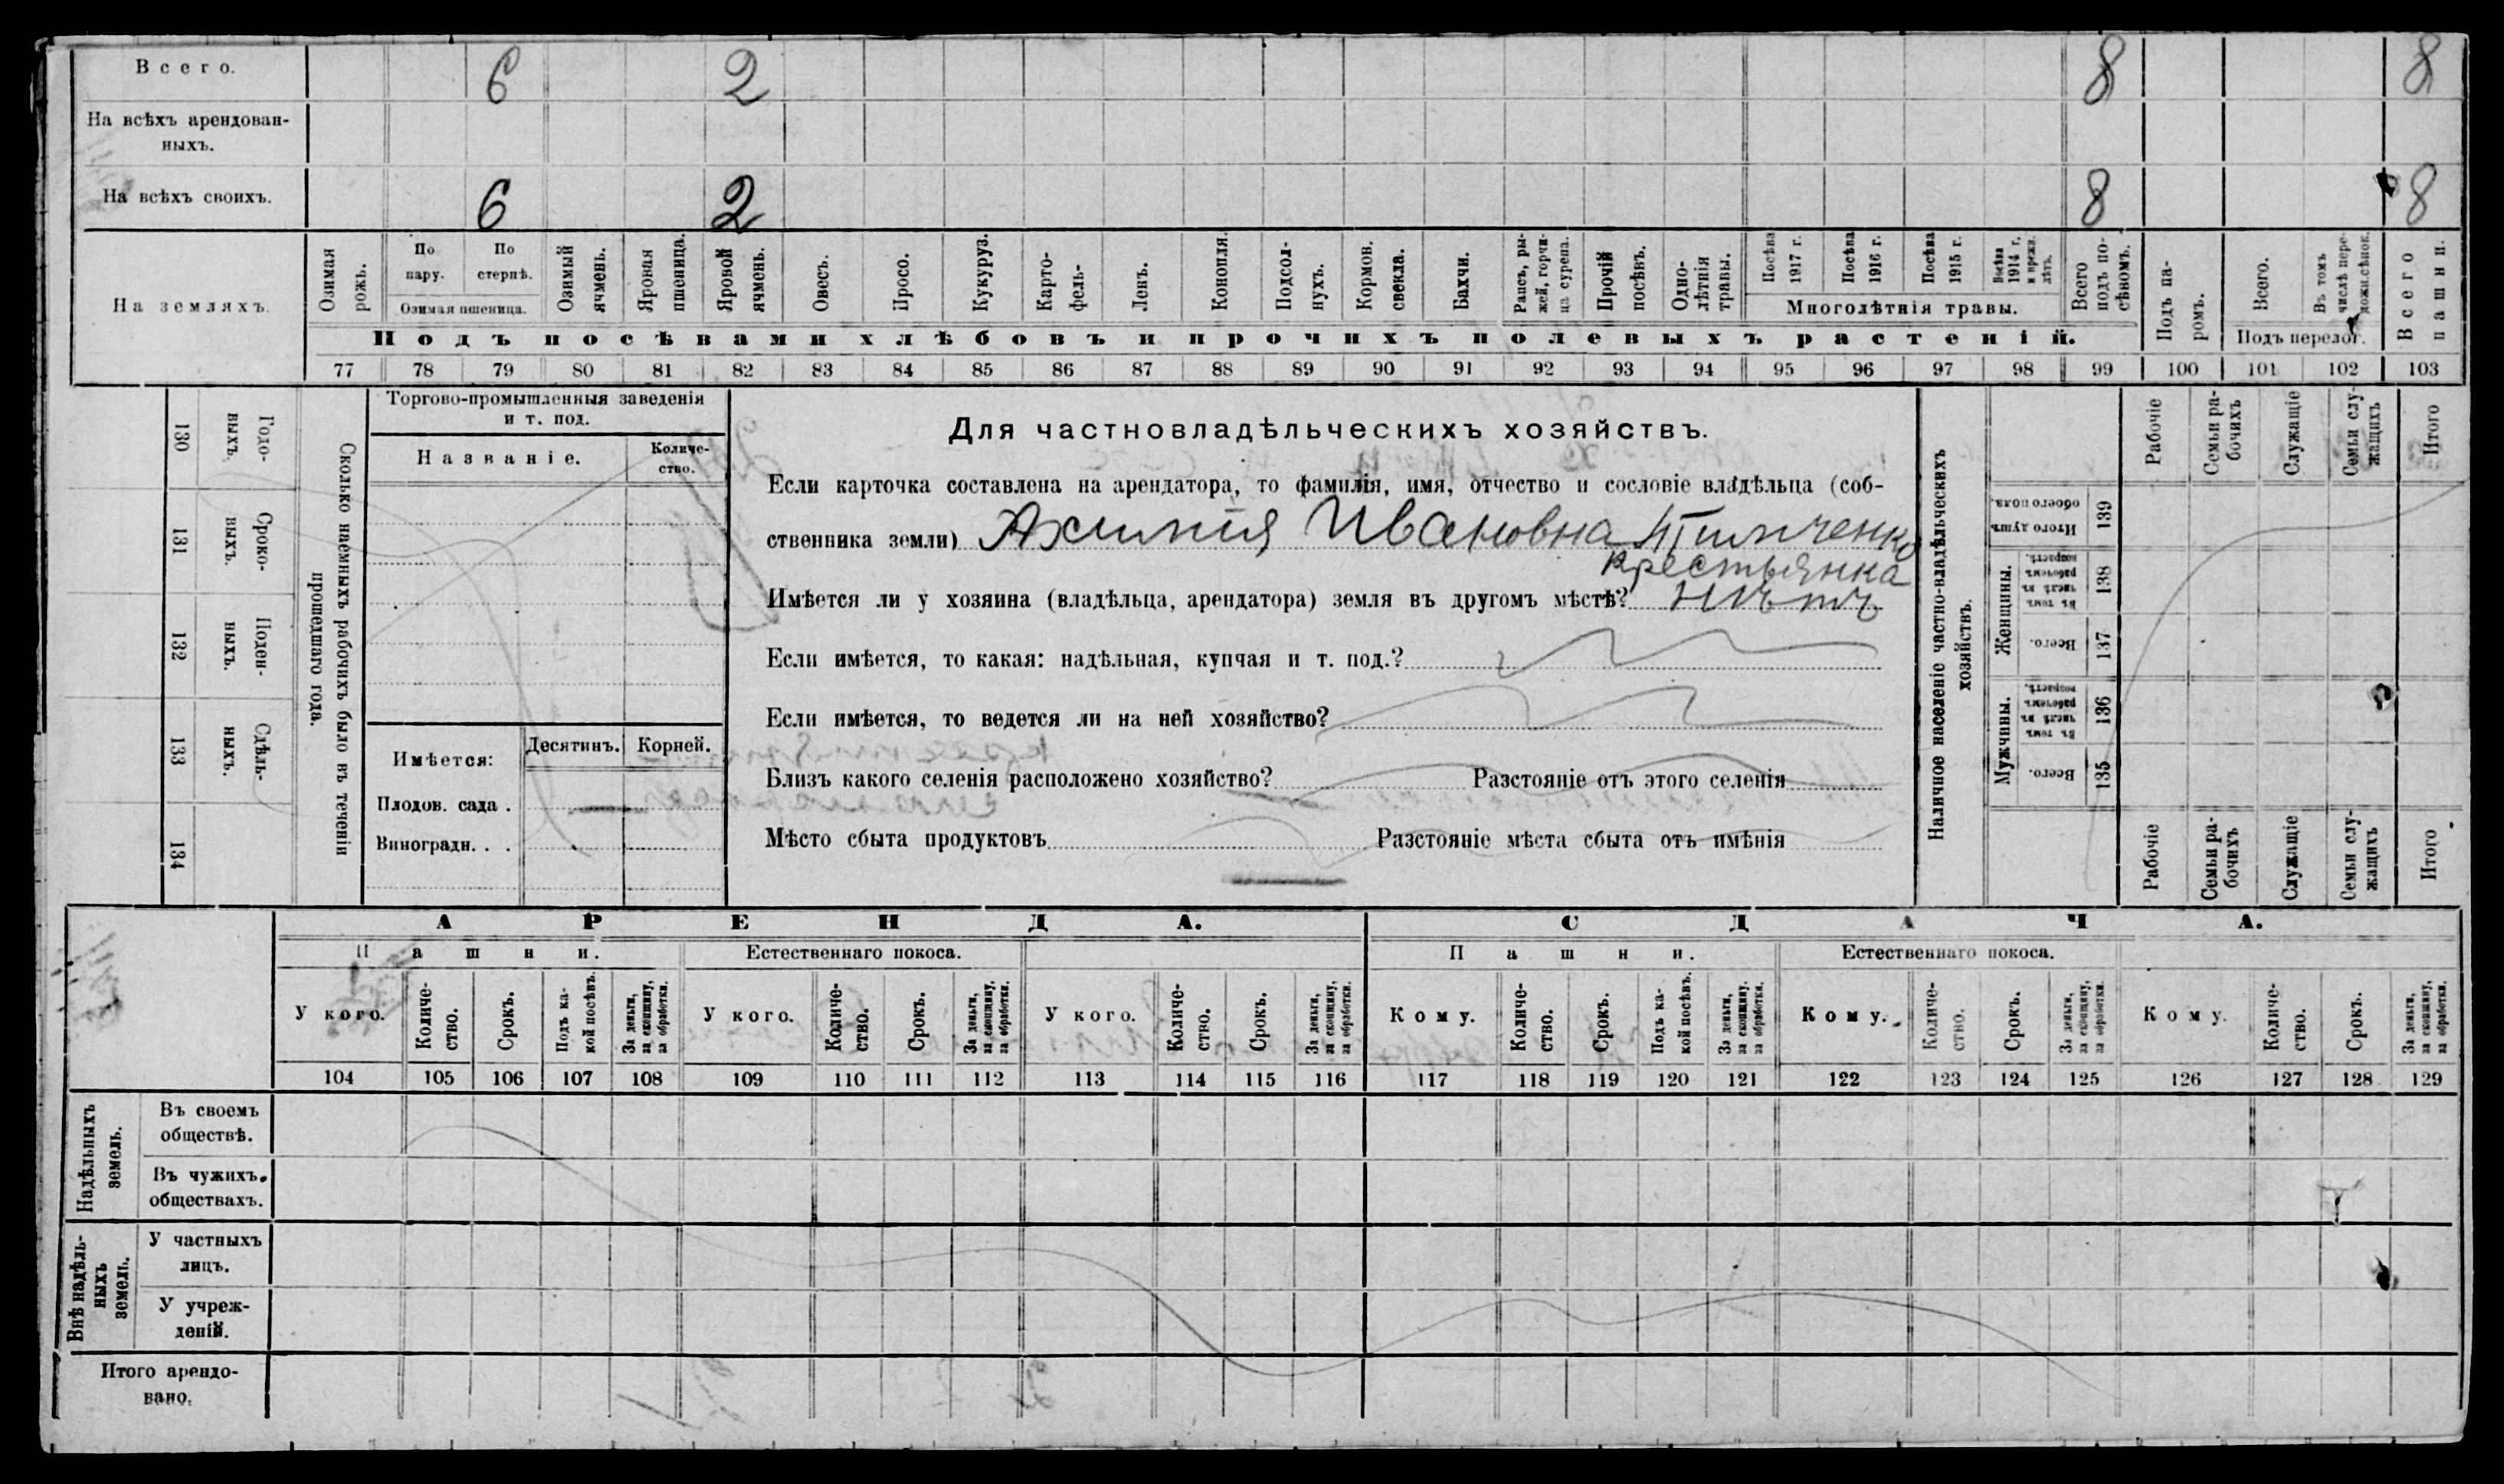 Всего. 6 2 8 8
На всѣхъ арендован-
ныхъ.
На всѣхъ своихъ. 6 2 8 8
На земляхъ.
Озимая рожь.
По пару.
По стернѣ.
Озимая пшеница.
Озимый ячмень.
Яровая пшеница.
Яровой ячмень.
Овесъ.
Просо.
Кукуруз.
Карто-
фель-
Ленъ.
Конопля.
Подсол-
нухъ.
Кормов. свекла.
Бахчи.
Рапсъ, ры-
жей, горчи-
ца сурепа.
Прочій посѣвъ.
Одно-
лѣтнія травы.
Посѣва 1917 г.
Посѣва 1916 г.
Посѣва 1915 г.
Посѣва 1914 г. и прежн. лѣтъ.
Многолѣтнія травы.
Всего подъ по-
сѣвомъ.
Подъ па-
ромъ.
Всего.
Въ томъ числѣ пере-
ложн.сѣнок.
Подъ перелог.
Всего пашни.
Подъ посѣвами хлѣбовъ и прочихъ полевыхъ растеній.
77 78 79 80 81 82 83 84 85 86 87 88 89 90 91 92 93 94 95 96 97 98 99 100 101 102 103
130 Годо-
выхъ.
131 Сроко-
выхъ.
132 Поден-
ныхъ.
133 Сдѣль-
ныхъ.
134
Сколько наемныхъ рабочихъ было въ теченіи
прошедшаго года.
Торгово-промышленныя заведенія
и т. под.
Названіе.
Количе-
ство.
Имѣется:
Десятинъ. Корней.
Плодов. сада .
Виноградн. . .
Для частновладѣльческихъ хозяйствъ.
Если карточка составлена на арендатора, то фамилія, имя, отчество и сословіе владѣльца (соб-
ственника земли) Ивановна
крестьянка
Имѣется ли у хозяина (владѣльца, арендатора) земля въ другомъ мѣстѣ? Нѣтъ
Если имѣется, то какая: надѣльная, купчая и т. под.?
Если имѣется, то ведется ли на ней хозяйство?
Близъ какого селенія расположено хозяйство? Разстояніе отъ этого селенія
Мѣсто сбыта продуктовъ Разстояніе мѣста сбыта отъ имѣнія
Наличное населеніе частно-владѣльческихъ
хозяйствъ.
Рабочіе
Семьи ра-
бочихъ
Служащіе
Семьи слу-
жащихъ
Итого
Итого душъ обоего пола. 139
Женщины.
Въ томъ числѣ въ рабочемъ возрастѣ. 138
Всего. 137
Мужчины.
Въ томъ числѣ въ рабочемъ возрастѣ. 136
Всего. 135
Рабочіе
Семьи ра-
бочихъ
Служащіе
Семьи слу-
жащихъ
Итого
АРЕНДА. СДАЧА.
Пашни. Естественнаго покоса. Пашни. Естественнаго покоса.
У кого.
Количе-
ство.
Срокъ.
Подъ ка-
кой посѣвъ.
За деньги,
за скопщину,
за обработки.
У кого.
Количе-
ство.
Срокъ.
За деньги,
за скопщину,
за обработки.
У кого.
Количе-
ство.
Срокъ.
За деньги,
за скопщину,
за обработки.
Кому.
Количе-
ство.
Срокъ.
Подъ ка-
кой посѣвъ.
За деньги,
за скопщину,
за обработки.
Кому.
Количе-
ство.
Срокъ.
За деньги,
за скопщину,
за обработки.
Кому.
Количе-
ство.
Срокъ.
За деньги,
за скопщину,
за обработки.
104 105 106 107 108 109 110 111 112 113 114 115 116 117 118 119 120 121 122 123 124 125 126 127 128 129
Надѣльныхъ
земель.
Въ своемъ
обществѣ.
Въ чужихъ
обществахъ.
Внѣ надѣль-
ныхъ
земель.
У частныхъ
лицъ.
У учреж-
деній.
Итого арендо-
вано.